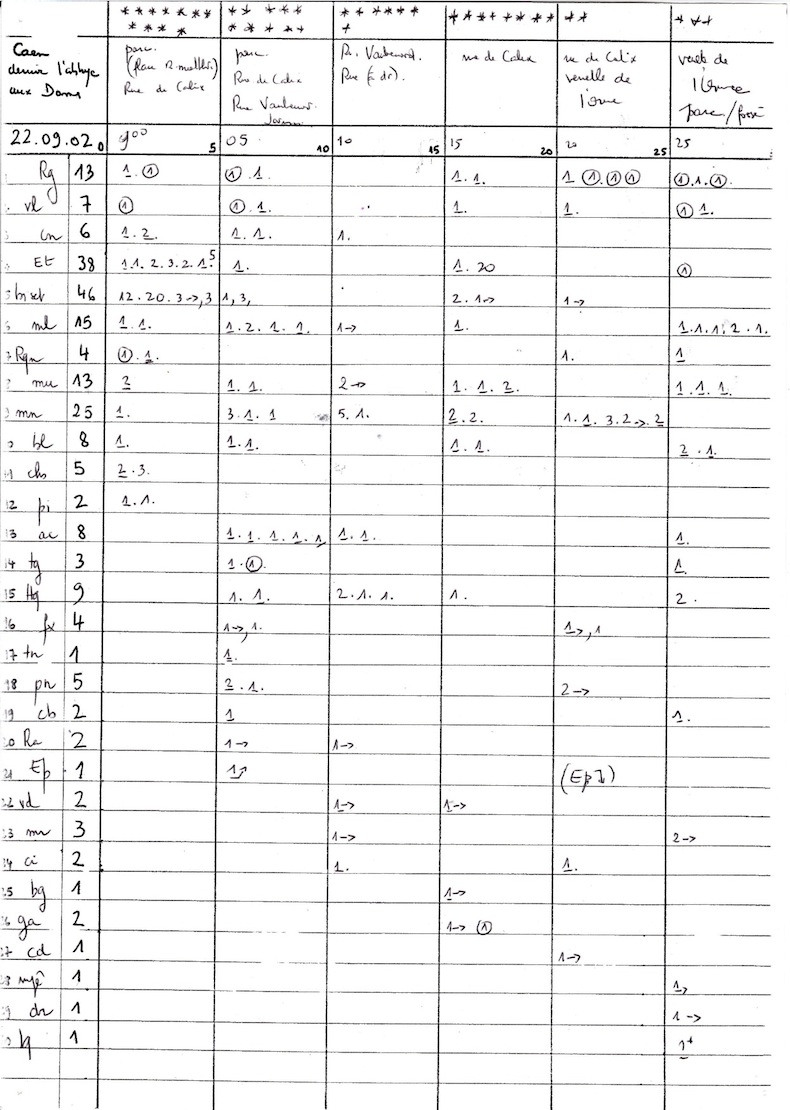 * * * * * * * ** *** ** ***** ******** ** ***
* * * * ** * ** *
Caen parc. parc. R. Vaubenard. rue de Calix rue de Calix
derrière l'abbaye (Place R. Rue de Calix Rue venelle de
aux Dames Rue de Calix Rue l'orne parc / fossé
22.09.02 0 9 00 5 05 10 10 15 15 20 20 25 25
Rg 13 1. ① ①. 1. 1. 1. 1 ①.①① ①.1.①.
vl 7 ① ①. 1. 1. 1. ① 1.
cn 6 1. 2. 1. 1. 1.
Et 38 1.1. 2. 3. 2. 1. 5 1. 1. 20 ①
46 12. 20. 3→, 3 1, 3, 2. 1→ 1→
ml 15 1. 1. 1. 2. 1. 1. 1→ 1. 1. 1. 1. 2. 1.
7 Rgn 4 ①. 1. 1. 1
mu 13 2 1. 1. 2→ 1. 1. 2. 1. 1. 1.
mn 25 1. 3. 1. 1 5. 1. 2. 2. 1. 1. 3. 2→. 2
bl 8 1. 1. 1. 1. 1. 2. 1.
11 chs 5 2. 3.
12 pi 2 1. 1.
13 ac 8 1. 1. 1. 1. 1 1. 1. 1.
14 tg 3 1. ①. 1.
15 Hq 9 1. 1. 2. 1. 1. 1. 2.
16 fx 4 1→, 1. 1→, 1
17 tn 1 1.
18 pn 5 2. 1. 2→
19 cb 2 1 1.
20 Ra 2 1→ 1→
21 Ep 1 1↗ (Ep 1)
22 vd 2 1→ 1→
23 mr 3 1→ 2→
24 ci 2 1. 1.
25 bg 1 1→
26 ga 2 1→ ①
27 cd 1 1→
28 1 1→
29 dr 1 1→
1 1+